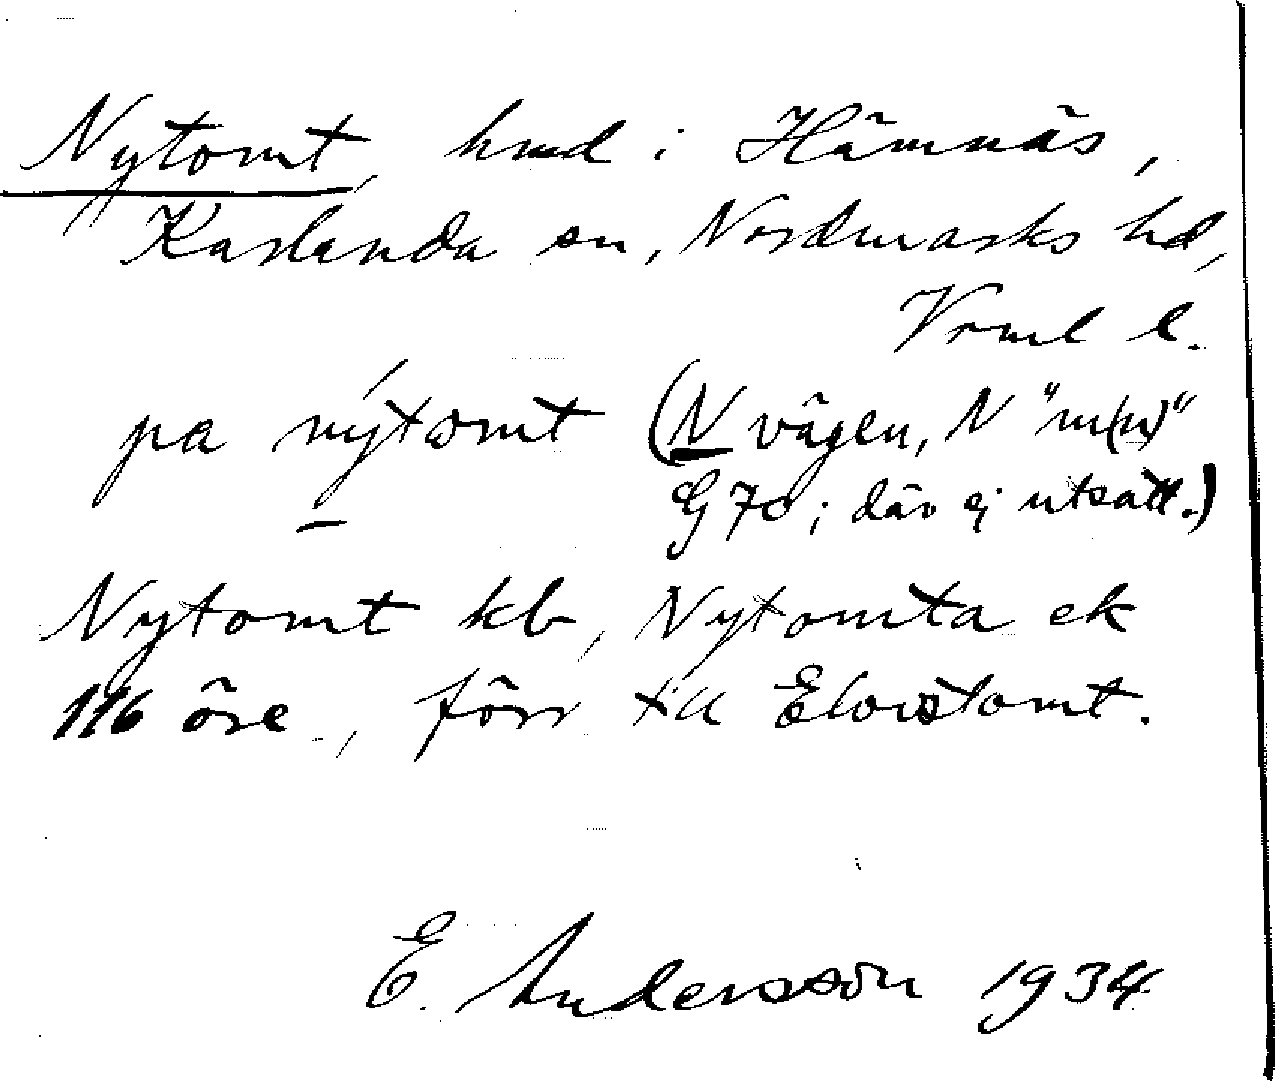 Nytomt, hmd i Hämnäs,
Karlanda sn, Nordmarks hd,
Vrml l.
pa nýtomt (N vägen, N "m(n)"
G 70; där ej utsatt.)
Nytomt kb, Nytomta ek
116 öre, förr till Elovstomt.
E. Andersson 1934